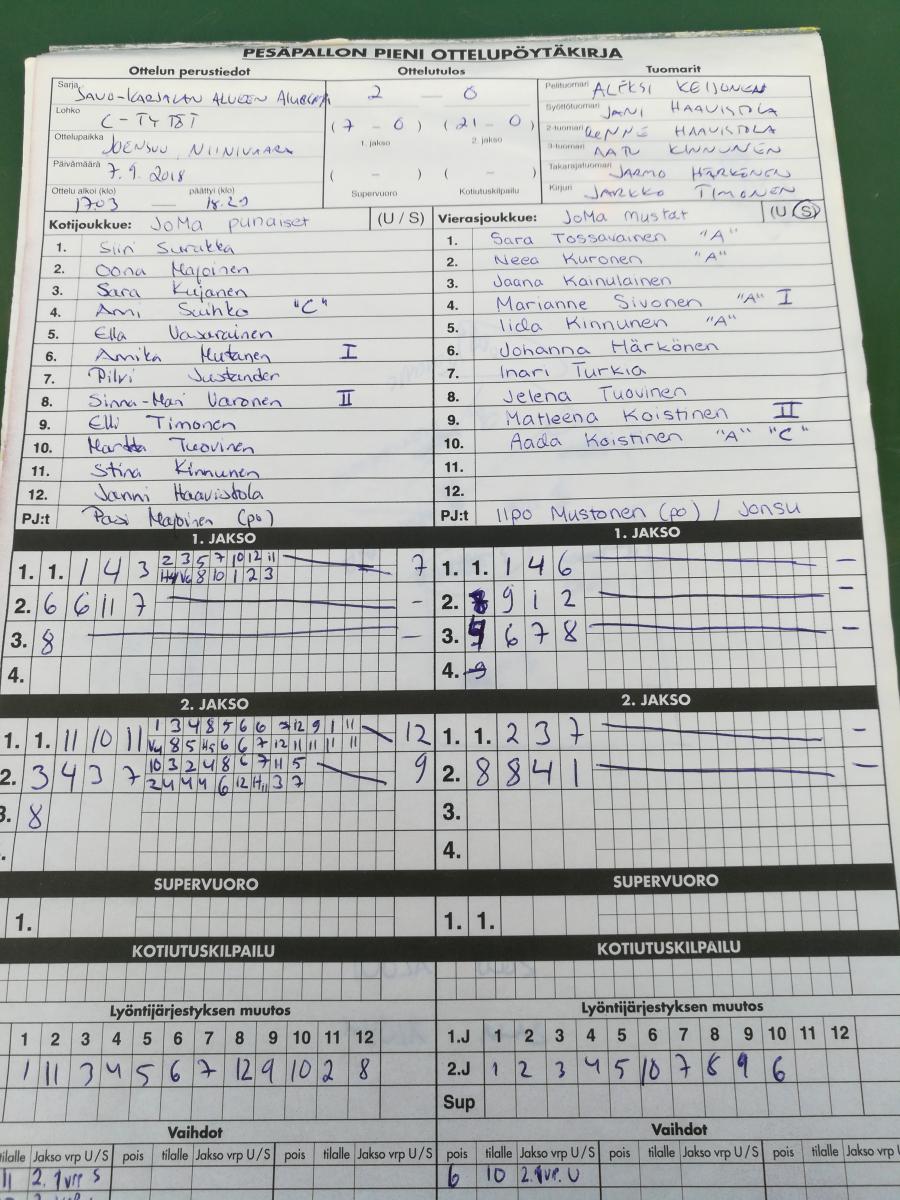 PESÄPALLON PIENI OTTELUPÖYTÄKIRJA
Ottelun perustiedot Ottelutulos Tuomarit
Sarja SAVO-KARJALAN ALUEEN 2 — 0 Pelituomari ALEKSI KEIJONEN
Lohko C-TYTÖT (7 - 0) (21 - 0) Syöttötuomari JANI HAAVISTOLA
1. jakso 2. jakso 2-tuomari HAAVISTOLA
Ottelupaikka JOENSUU, NIINIVAARA 3-tuomari AATU KINNUNEN
Päivämäärä 7.9.2018 ( - ) ( - ) Takarajatuomari JARMO HÄRKÖNEN
Ottelu alkoi (klo) päättyi (klo) Supervuoro Kotiutuskilpailu Kirjuri JARKKO TIMONEN
17.03 — 18.29
Kotijoukkue: JoMa punaiset (U / S) Vierasjoukkue: JoMa mustat (U / S)
1. Siiri Surakka 1. Sara Tossavainen "A"
2. Oona Majoinen 2. Neea Kuronen "A"
3. Sara Kujanen 3. Jaana Kainulainen
4. Anni Suihko "C" 4. Marianne Sivonen "A" I
5. Ella Vasarainen 5. Iida Kinnunen "A"
6. Annika Mutanen I 6. Johanna Härkönen
7. Pilvi Justander 7. Inari Turkia
8. Sinna-Mari Varonen II 8. Jelena Tuovinen
9. Elli Timonen 9. Matleena Koistinen II
10. Martta Tuovinen 10. Aada Koistinen "A" "C"
11. Stina Kinnunen 11.
12. Janni Haavistola 12.
PJ:t Pasi Majoinen (po) PJ:t Ilpo Mustonen (po) / Jonsu
1. JAKSO 1. JAKSO
1. 1. 1 4 3 2 3 5 7 10 12 11 7 1. 1. 1 4 6 —
8 10 1 2 3
2. 6 6 11 7 — 2. 9 1 2 —
3. 8 — 3. 6 7 8 —
4. 4. 9
2. JAKSO 2. JAKSO
1. 1. 11 10 11 1 3 4 8 5 6 6 7 12 9 1 11 12 1. 1. 2 3 7 —
8 5 6 6 7 12 11 11 11 11
2. 3 4 3 7 10 3 2 4 8 6 7 11 5 9 2. 8 8 4 1 —
2 4 4 4 6 12 3 7
3. 8 3.
4.
SUPERVUORO SUPERVUORO
1. 1. 1.
KOTIUTUSKILPAILU KOTIUTUSKILPAILU
Lyöntijärjestyksen muutos Lyöntijärjestyksen muutos
1 2 3 4 5 6 7 8 9 10 11 12 1.J 1 2 3 4 5 6 7 8 9 10 11 12
1 11 3 4 5 6 7 12 9 10 2 8 2.J 1 2 3 4 5 10 7 8 9 6
Sup
Vaihdot Vaihdot
tilalle Jakso vrp U/S pois tilalle Jakso vrp U/S pois tilalle Jakso vrp U/S pois tilalle Jakso vrp U/S pois tilalle Jakso vrp U/S pois tilalle Jakso vrp
11 2. 1 vrp S 6 10 2. 1 vrp. U